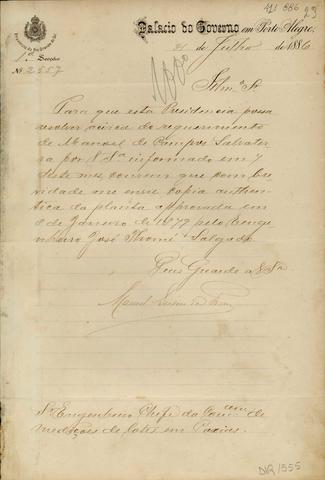 Palacio do Governo em Porto Alegre,
21 de Julho de 1886
1ª Secção
Nº 2557
Illmo Sr
Para que esta Presidencia possa
resolver ácerca do requerimento
de Manoel de Campos Salvater
ra por V Sª informado em 7
deste mez convem que com bre
vidade me envie copia authen
tica da planta approvada em
de Janeiro de 1879 pelo Enge
nheiro José Thomé Salgado.
Deus Guarde a V Sª
Manoel
Sr Engenheiro Chefe da Comm. de
medições de lotes em Caxias.
DVR 1555